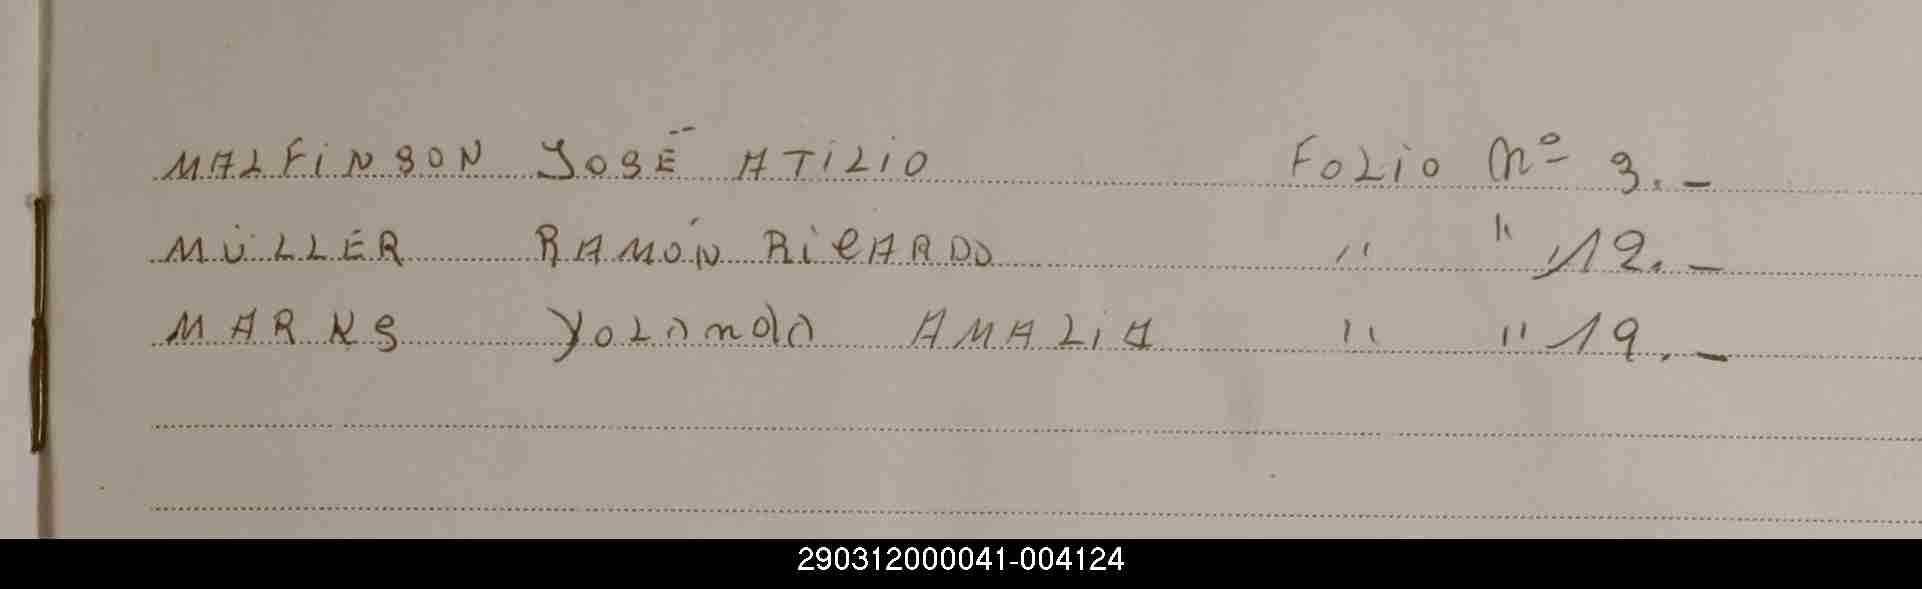 MALFINSON JOSÉ ATILIO FOLIO Nº 3.-
MÜLLER RAMÓN RICARDO " " 12.-
MARKS YOLANDA AMALIA " " 19.-
290312000041-004124